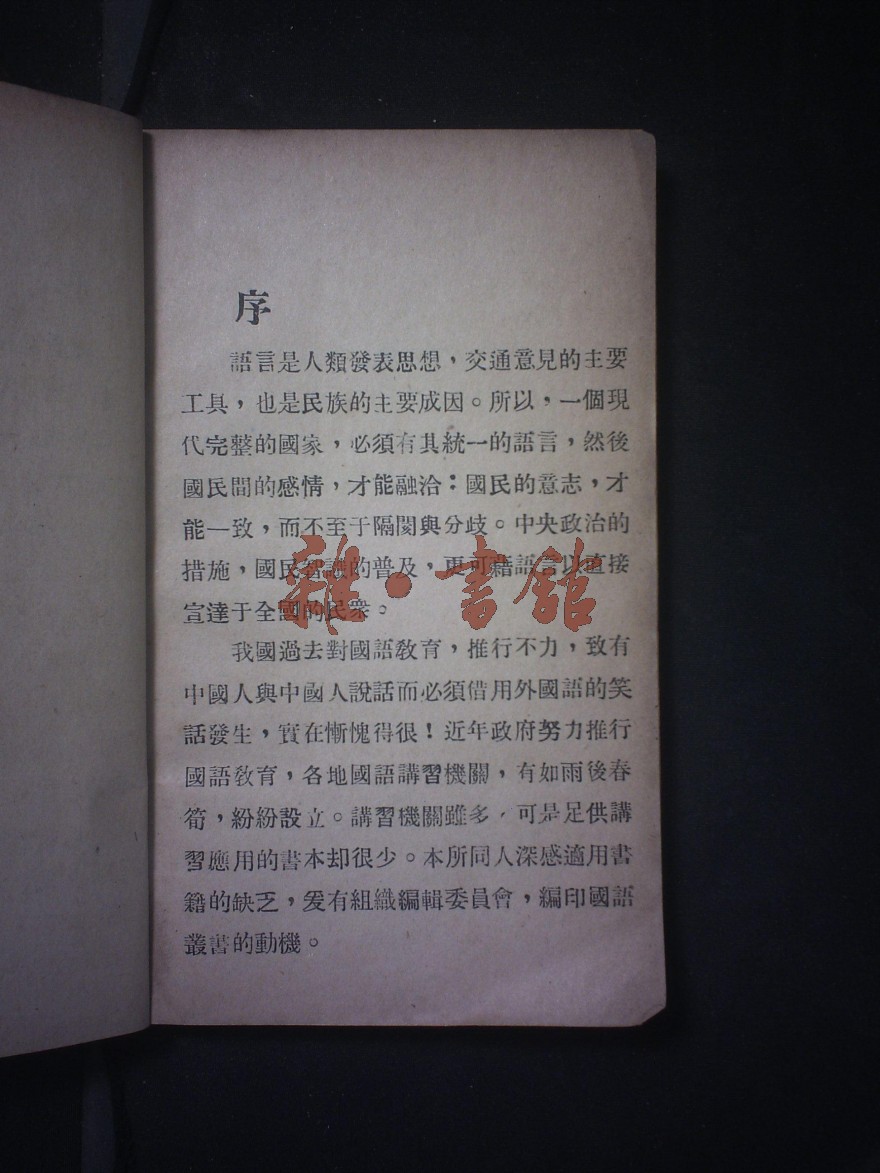 序
語言是人類發表思想，交通意見的主要
工具，也是民族的主要成因。所以，一個現
代完整的國家，必須有其統一的語言，然後
國民間的感情，才能融洽：國民的意志，才
能一致，而不至于隔閡與分歧。中央政治的
措施，國民智識的普及，更可藉語言以直接
宣達于全國的民衆。
雜·書館
我國過去對國語教育，推行不力，致有
中國人與中國人說話而必須借用外國語的笑
話發生，實在慚愧得很！近年政府努力推行
國語教育，各地國語講習機關，有如雨後春
筍，紛紛設立。講習機關雖多，可是足供講
習應用的書本却很少。本所同人深感適用書
籍的缺乏，爰有組織編輯委員會，編印國語
叢書的動機。